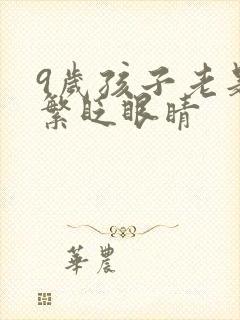 9歲孩子老是
繁眨眼睛
華農